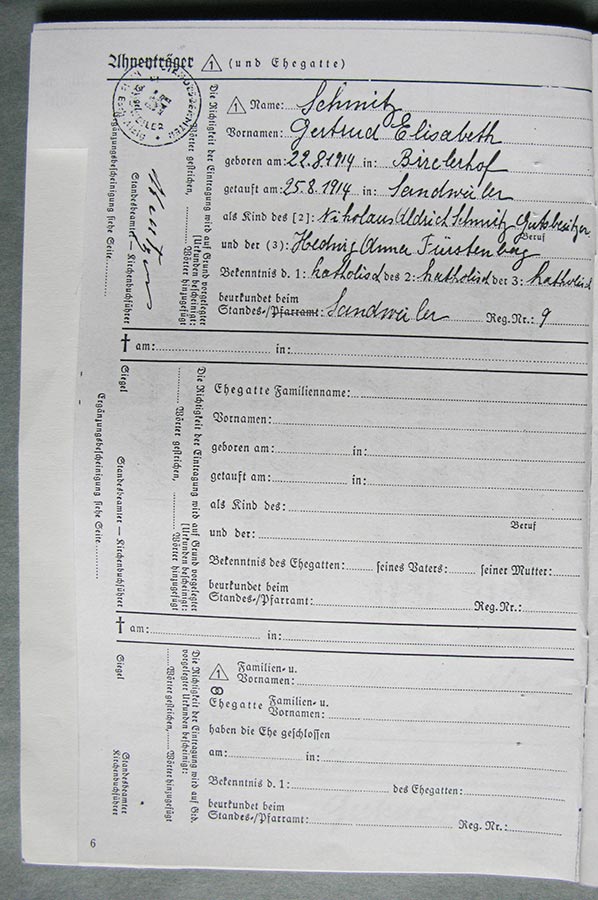 Ahnenträger 1 (und Ehegatte)
1 Name: Schmitz
Vornamen: Gertrud Elisabeth
geboren am: 22.8.1914 in: Birelerhof
getauft am: 25.8.1914 in: Sandweiler
als Kind des [2]: Nikolaus Aldrich Schmitz Gutsbesitzer
Beruf
und der (3): Hedwig Anna Fürstenberg
Bekenntnis d. 1: katholisch des 2: katholisch der 3: katholisch
beurkundet beim
Standes-/Pfarramt: Sandweiler Reg.Nr.: 9
Die Richtigkeit der Eintragung wird auf Grund vorgelegter
[Urkunden bescheinigt:
Wörter gestrichen, Wörter hinzugefügt
Standesbeamter — Kirchenbuchführer
Ergänzungsbescheinigung siehe Seite
† am: in:
Ehegatte Familienname:
Vornamen:
geboren am: in:
getauft am: in:
als Kind des:
Beruf
und der:
Bekenntnis des Ehegatten: seines Vaters: seiner Mutter:
beurkundet beim
Standes-/Pfarramt: Reg.Nr.:
Die Richtigkeit der Eintragung wird auf Grund vorgelegter
[Urkunden bescheinigt:
Wörter gestrichen, Wörter hinzugefügt
Siegel Standesbeamter — Kirchenbuchführer
Ergänzungsbescheinigung siehe Seite
† am: in:
1 Familien- u.
Vornamen:
Ehegatte Familien- u.
Vornamen:
haben die Ehe geschlossen
am: in:
Bekenntnis d. 1: des Ehegatten:
beurkundet beim
Standes-/Pfarramt: Reg. Nr.:
Die Richtigkeit der Eintragung wird auf Grd.
vorgelegter Urkunden bescheinigt:
Wörter gestrichen, Wörter hinzugefügt
Siegel Standesbeamter
Kirchenbuchführer
6